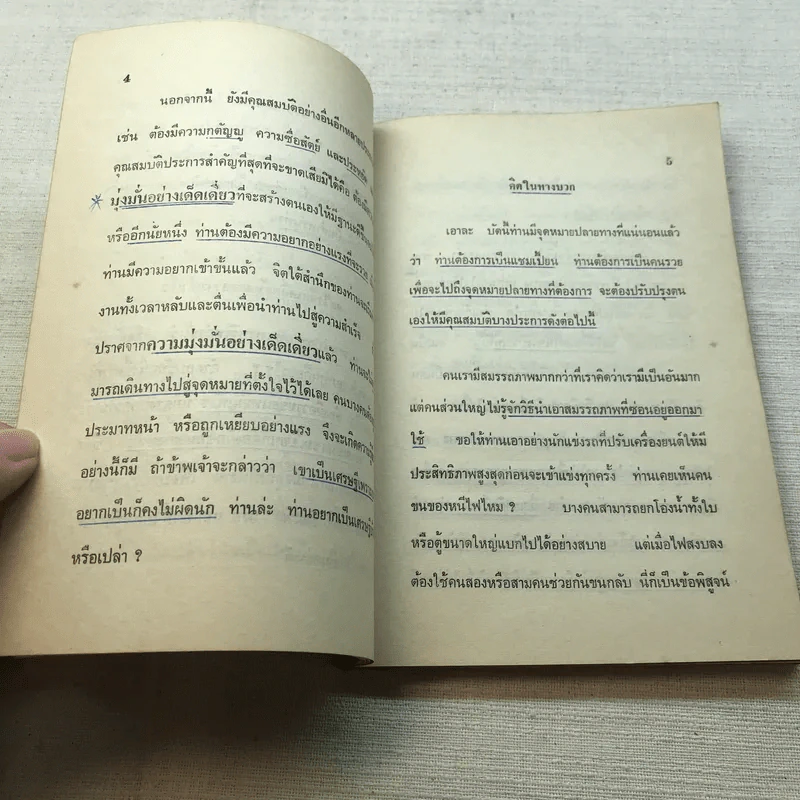 4
นอกจากนี้ ยังมีคุณสมบัติอย่างอื่นอีกหลาย
เช่น ต้องมีความกตัญญู ความซื่อสัตย์
คุณสมบัติประการสำคัญที่สุดที่จะขาดเสียมิได้คือ
มุ่งมั่นอย่างเด็ดเดี่ยวที่จะสร้างตนเองให้มีฐานะ
หรืออีกนัยหนึ่ง ท่านต้องมีความอยากอย่างแรงที่จะรวย
ท่านมีความอยากเข้าขั้นแล้ว จิตใต้สำนึกของท่าน
งานทั้งเวลาหลับและตื่นเพื่อนำท่านไปสู่ความสำเร็จ
ปราศจากความมุ่งมั่นอย่างเด็ดเดี่ยวแล้ว
มารถเดินทางไปสู่จุดหมายที่ตั้งใจไว้ได้เลย คนบางคน
ประมาทหน้า หรือถูกเหยียบอย่างแรง จึงจะเกิดความ
อย่างนี้ก็มี ถ้าข้าพเจ้าจะกล่าวว่า เขาเป็นเศรษฐี
อยากเป็นก็คงไม่ผิดนัก ท่านล่ะ ท่านอยากเป็นเศรษฐี
หรือเปล่า ?
5
คิดในทางบวก
เอาละ บัดนี้ท่านมีจุดหมายปลายทางที่แน่นอนแล้ว
ว่า ท่านต้องการเป็นแชมเปี้ยน ท่านต้องการเป็นคนรวย
เพื่อจะไปถึงจุดหมายปลายทางที่ต้องการ จะต้องปรับปรุงตน
เองให้มีคุณสมบัติบางประการดังต่อไปนี้
คนเรามีสมรรถภาพมากกว่าที่เราคิดว่าเรามีเป็นอันมาก
แต่คนส่วนใหญ่ไม่รู้จักวิธีนำเอาสมรรถภาพที่ซ่อนอยู่ออกมา
ใช้ ขอให้ท่านเอาอย่างนักแข่งรถที่ปรับเครื่องยนต์ให้มี
ประสิทธิภาพสูงสุดก่อนจะเข้าแข่งทุกครั้ง ท่านเคยเห็นคน
ขนของหนีไฟไหม ? บางคนสามารถยกโอ่งน้ำทั้งใบ
หรือตู้ขนาดใหญ่แบกไปได้อย่างสบาย แต่เมื่อไฟสงบลง
ต้องใช้คนสองหรือสามคนช่วยกันขนกลับ นี่ก็เป็นข้อพิสูจน์